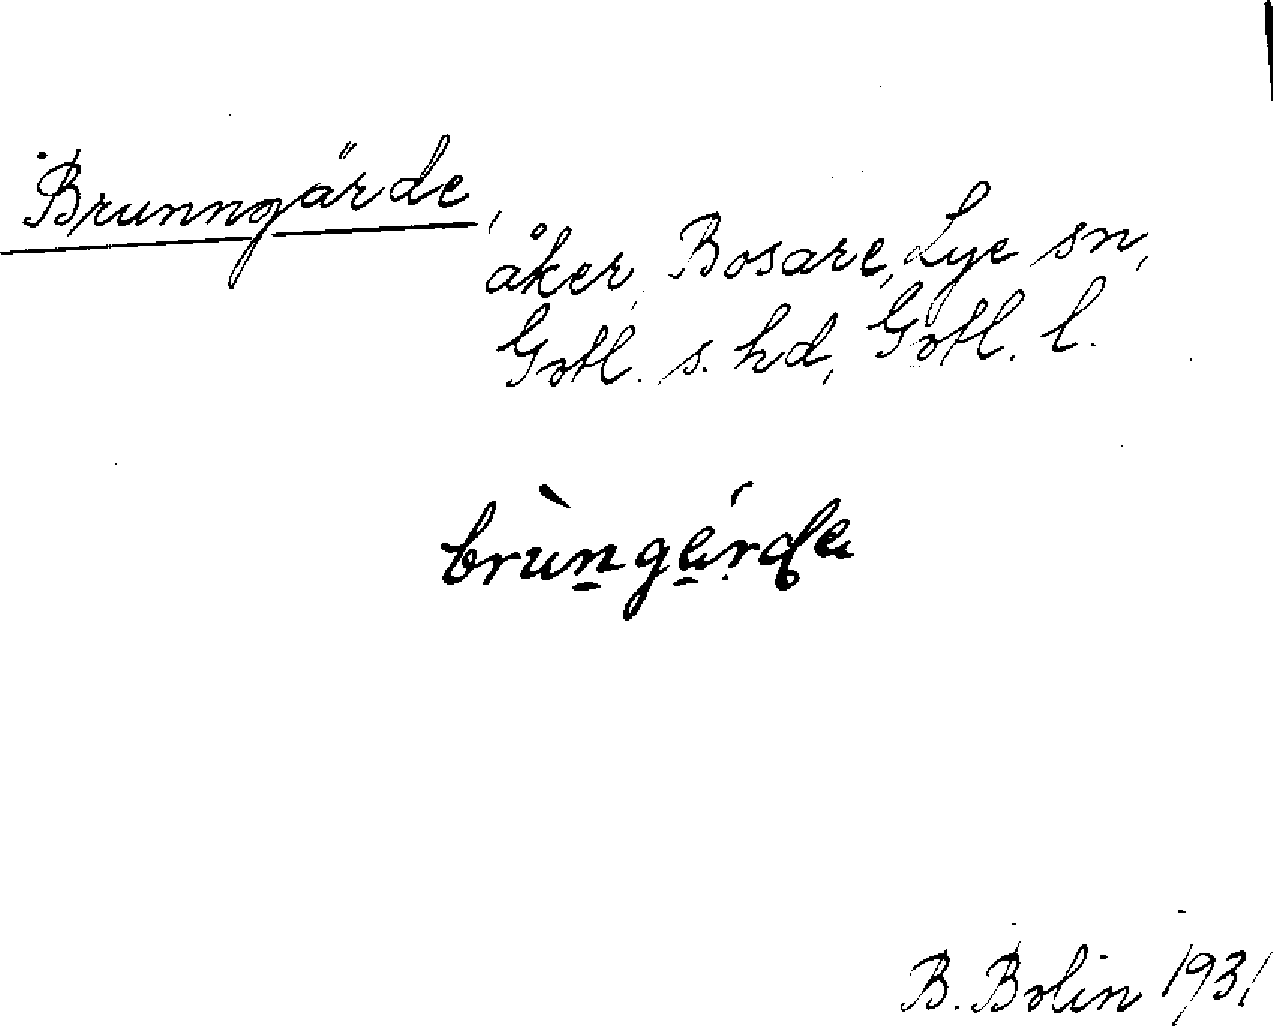 Brunngärde,
åker, Bosare, Lye sn,
Gotl. s. hd, Gotl. l.
brùngä́rde
B. Bolin 1931